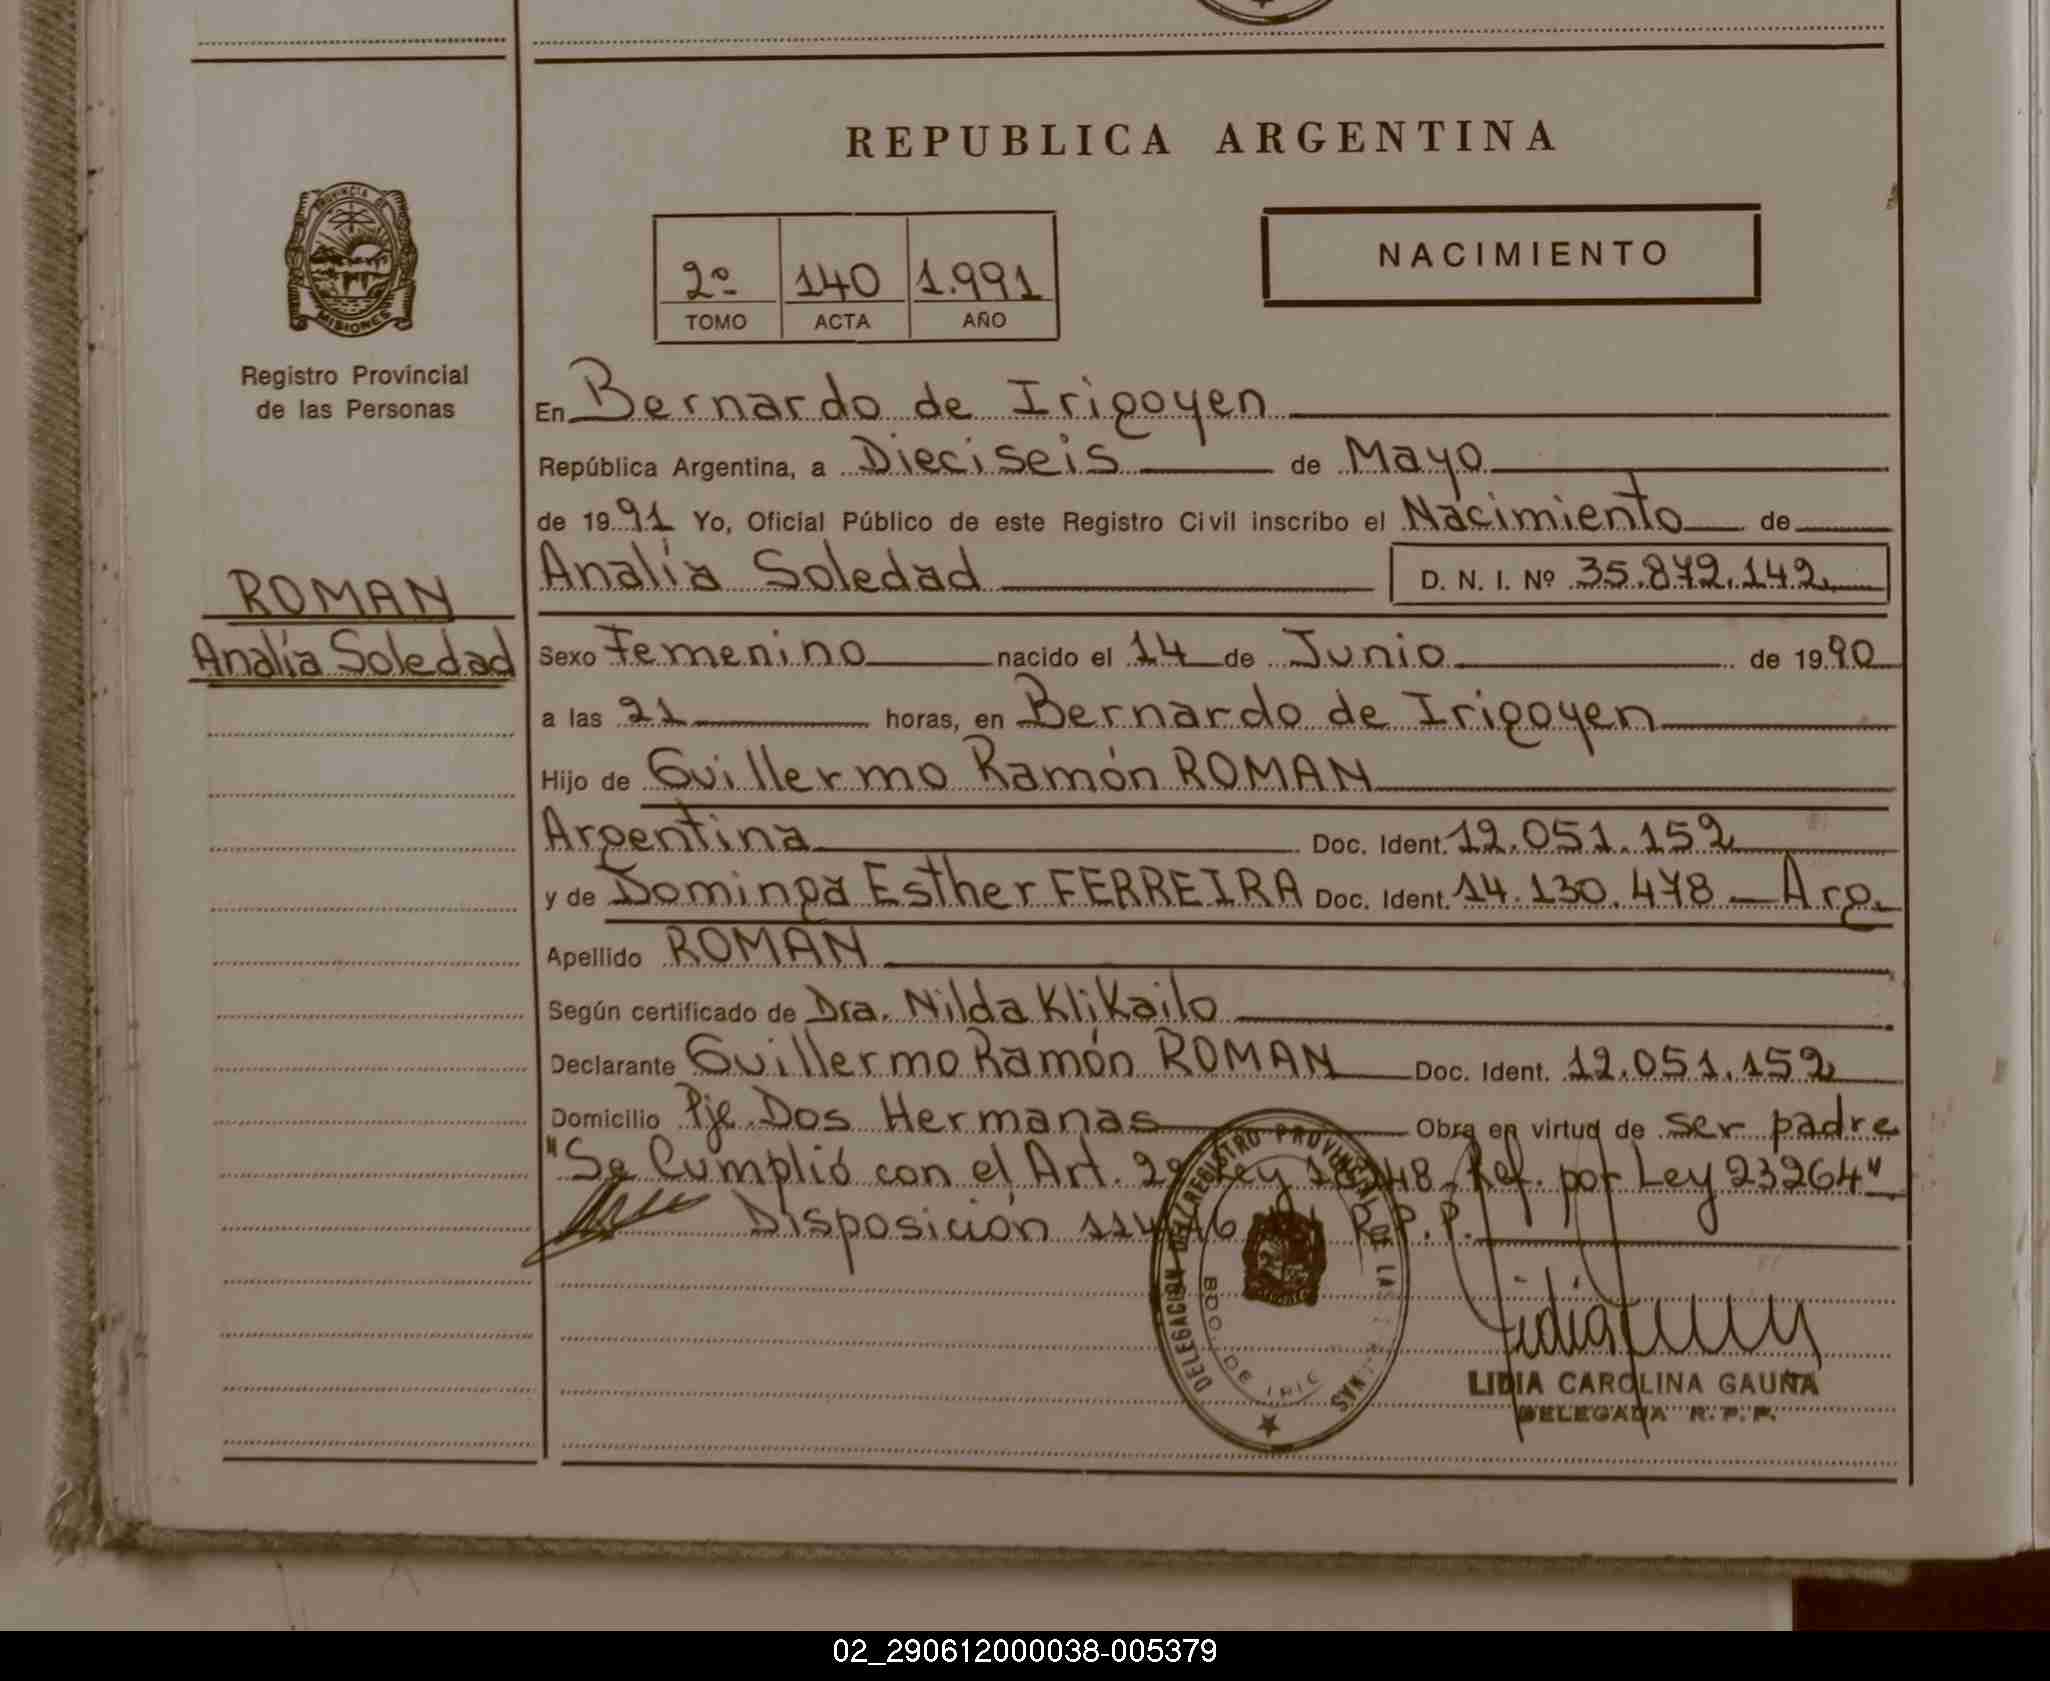 REPUBLICA ARGENTINA
PROVINCIA DE
MISIONES
Registro Provincial
de las Personas
2º 140 1.991
TOMO ACTA AÑO
NACIMIENTO
En Bernardo de Irigoyen
República Argentina, a Dieciseis de Mayo
de 1991 Yo, Oficial Público de este Registro Civil inscribo el Nacimiento de
Analía Soledad D. N. I. Nº 35.872.142
ROMAN
Analía Soledad
Sexo Femenino nacido el 14 de Junio de 1990
a las 21 horas, en Bernardo de Irigoyen
Hijo de Guillermo Ramón ROMAN
Argentina Doc. Ident. 12.051.152
y de Dominga Esther FERREIRA Doc. Ident. 14.130.478 - Arg.
Apellido ROMAN
Según certificado de Dra. Nilda Klikailo
Declarante Guillermo Ramón ROMAN Doc. Ident. 12.051.152
Domicilio Pje. Dos Hermanas Obra en virtud de ser padre
"Se Cumplió con el Art. 2º Ley Ref. por Ley 23264"
Disposición R.P.P.
DELEGACION DEL REGISTRO PROVINCIAL DE LAS
BDO. DE
Lidia
LIDIA CAROLINA GAUNA
DELEGADA R.P.P.
02_290612000038-005379